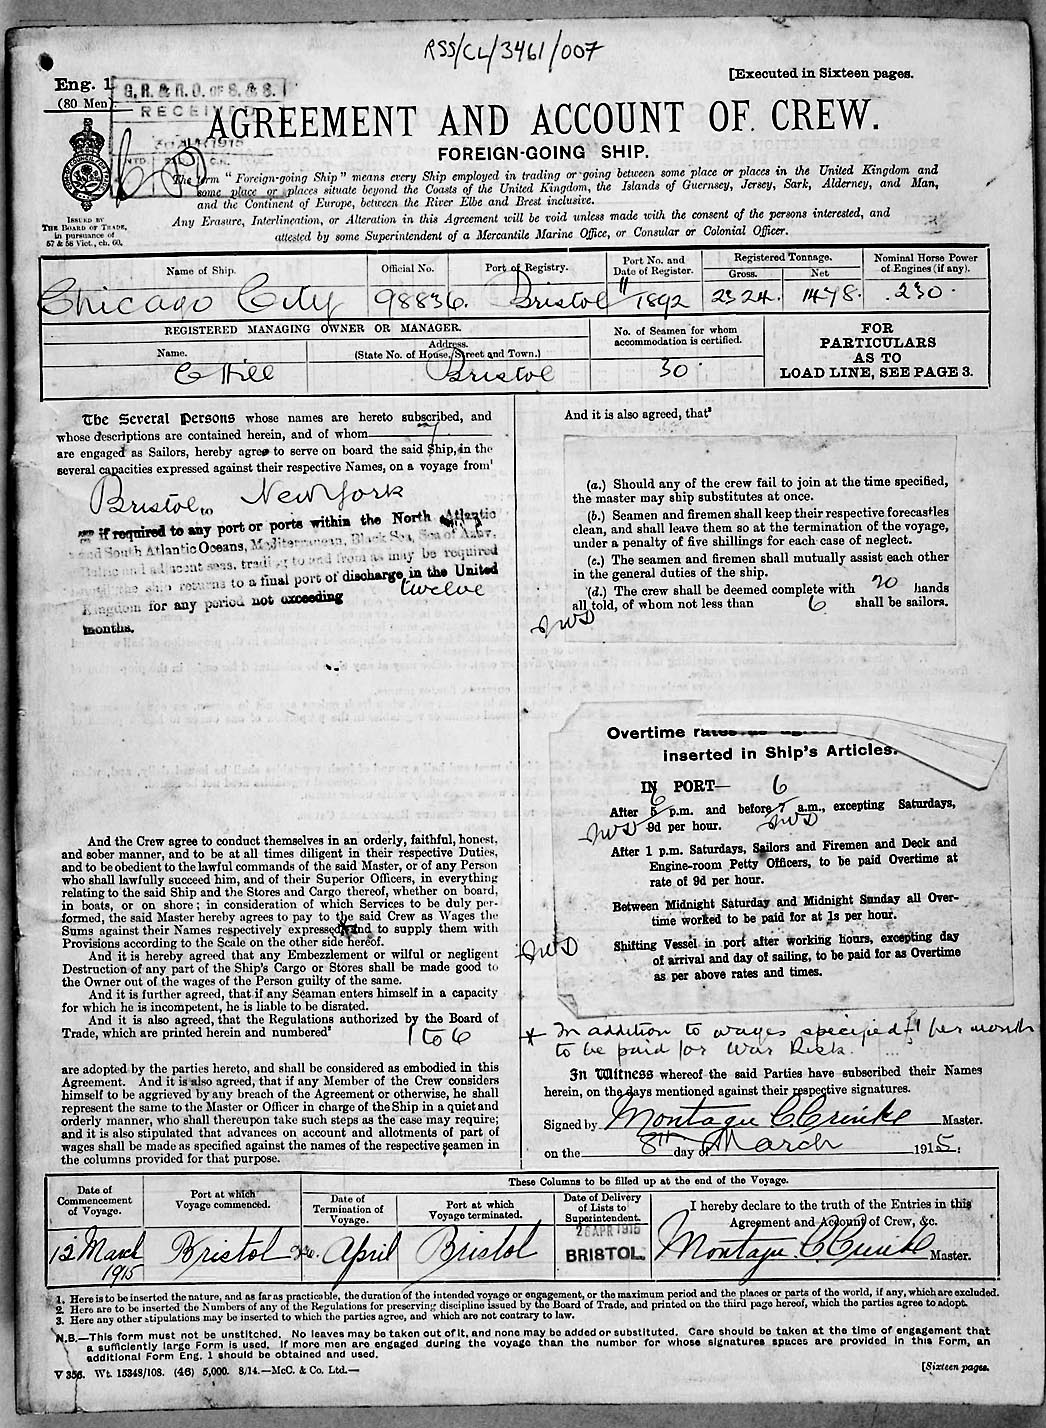 RSS/CL/3461/007
[Executed in Sixteen pages.
Eng. 1
(80 Men)
G. R. & R. O. OF S. & S.
RECEIVED
1915
AGREEMENT AND ACCOUNT OF CREW.
FOREIGN-GOING SHIP.
The term "Foreign-going Ship" means every Ship employed in trading or going between some place or places in the United Kingdom and
some place or places situate beyond the Coasts of the United Kingdom, the Islands of Guernsey, Jersey, Sark, Alderney, and Man,
and the Continent of Europe, between the River Elbe and Brest inclusive.
Any Erasure, Interlineation, or Alteration in this Agreement will be void unless made with the consent of the persons interested, and
attested by some Superintendent of a Mercantile Marine Office, or Consular or Colonial Officer.
ISSUED BY
THE BOARD OF TRADE,
in pursuance of
57 & 58 Vict., ch. 60.
Name of Ship.
Official No.
Port of Registry.
Port No. and
Date of Register.
Registered Tonnage.
Gross.
Net
Nominal Horse Power
of Engines (if any).
Chicago City
98836.
Bristol
11/1892
2324.
1478.
230.
REGISTERED MANAGING OWNER OR MANAGER.
Name.
Address.
(State No. of House, Street and Town.)
No. of Seamen for whom
accommodation is certified.
FOR
PARTICULARS
AS TO
LOAD LINE, SEE PAGE 3.
C Hill
Bristol
30.
The Several Persons whose names are hereto subscribed, and
whose descriptions are contained herein, and of whom
are engaged as Sailors, hereby agree to serve on board the said Ship, in the
several capacities expressed against their respective Names, on a voyage from¹
Bristol to New York
if required to any port or ports within the North Atlantic
and South Atlantic Oceans, Mediterranean, Black Sea, Sea of Azov,
Baltic and adjacent seas, trading to and from as may be required
until the ship returns to a final port of discharge in the United
Kingdom for any period not exceeding twelve
months.
And the Crew agree to conduct themselves in an orderly, faithful, honest,
and sober manner, and to be at all times diligent in their respective Duties,
and to be obedient to the lawful commands of the said Master, or of any Person
who shall lawfully succeed him, and of their Superior Officers, in everything
relating to the said Ship and the Stores and Cargo thereof, whether on board,
in boats, or on shore; in consideration of which Services to be duly per-
formed, the said Master hereby agrees to pay to the said Crew as Wages the
Sums against their Names respectively expressed, and to supply them with
Provisions according to the Scale on the other side hereof.
And it is hereby agreed that any Embezzlement or wilful or negligent
Destruction of any part of the Ship's Cargo or Stores shall be made good to
the Owner out of the wages of the Person guilty of the same.
And it is further agreed, that if any Seaman enters himself in a capacity
for which he is incompetent, he is liable to be disrated.
And it is also agreed, that the Regulations authorized by the Board of
Trade, which are printed herein and numbered²
1 to 6
are adopted by the parties hereto, and shall be considered as embodied in this
Agreement. And it is also agreed, that if any Member of the Crew considers
himself to be aggrieved by any breach of the Agreement or otherwise, he shall
represent the same to the Master or Officer in charge of the Ship in a quiet and
orderly manner, who shall thereupon take such steps as the case may require;
and it is also stipulated that advances on account and allotments of part of
wages shall be made as specified against the names of the respective seamen in
the columns provided for that purpose.
And it is also agreed, that³
(a.) Should any of the crew fail to join at the time specified,
the master may ship substitutes at once.
(b.) Seamen and firemen shall keep their respective forecastles
clean, and shall leave them so at the termination of the voyage,
under a penalty of five shillings for each case of neglect.
(c.) The seamen and firemen shall mutually assist each other
in the general duties of the ship.
(d.) The crew shall be deemed complete with 20 hands
all told, of whom not less than 6 shall be sailors.
Overtime rates as
inserted in Ship's Articles.
IN PORT—
6 6
After 5 p.m. and before 7 a.m., excepting Saturdays,
9d per hour.
After 1 p.m. Saturdays, Sailors and Firemen and Deck and
Engine-room Petty Officers, to be paid Overtime at
rate of 9d per hour.
Between Midnight Saturday and Midnight Sunday all Over-
time worked to be paid for at 1s per hour.
Shifting Vessel in port after working hours, excepting day
of arrival and day of sailing, to be paid for as Overtime
as per above rates and times.
* In addition to wages specified £1 per month
to be paid for War Risk.
In Witness whereof the said Parties have subscribed their Names
herein, on the days mentioned against their respective signatures.
Signed by Montagu C. Crinks Master.
on the 8th day of March 1915.
These Columns to be filled up at the end of the Voyage.
Date of
Commencement
of Voyage.
Port at which
Voyage commenced.
Date of
Termination of
Voyage.
Port at which
Voyage terminated.
Date of Delivery
of Lists to
Superintendent.
I hereby declare to the truth of the Entries in this
Agreement and Account of Crew, &c.
12 March
1915
Bristol
April
Bristol
26 APR 1915
BRISTOL.
Montagu C. Crinks Master.
1. Here is to be inserted the nature, and as far as practicable, the duration of the intended voyage or engagement, or the maximum period and the places or parts of the world, if any, which are excluded.
2. Here are to be inserted the Numbers of any of the Regulations for preserving discipline issued by the Board of Trade, and printed on the third page hereof, which the parties agree to adopt.
3. Here any other stipulations may be inserted to which the parties agree, and which are not contrary to law.
N.B.—This form must not be unstitched. No leaves may be taken out of it, and none may be added or substituted. Care should be taken at the time of engagement that
a sufficiently large Form is used. If more men are engaged during the voyage than the number for whose signatures spaces are provided in this Form, an
additional Form Eng. 1 should be obtained and used.
V 356. Wt. 15348/108. (46) 5,000. 8/14.—McC. & Co. Ltd.—
[Sixteen pages.